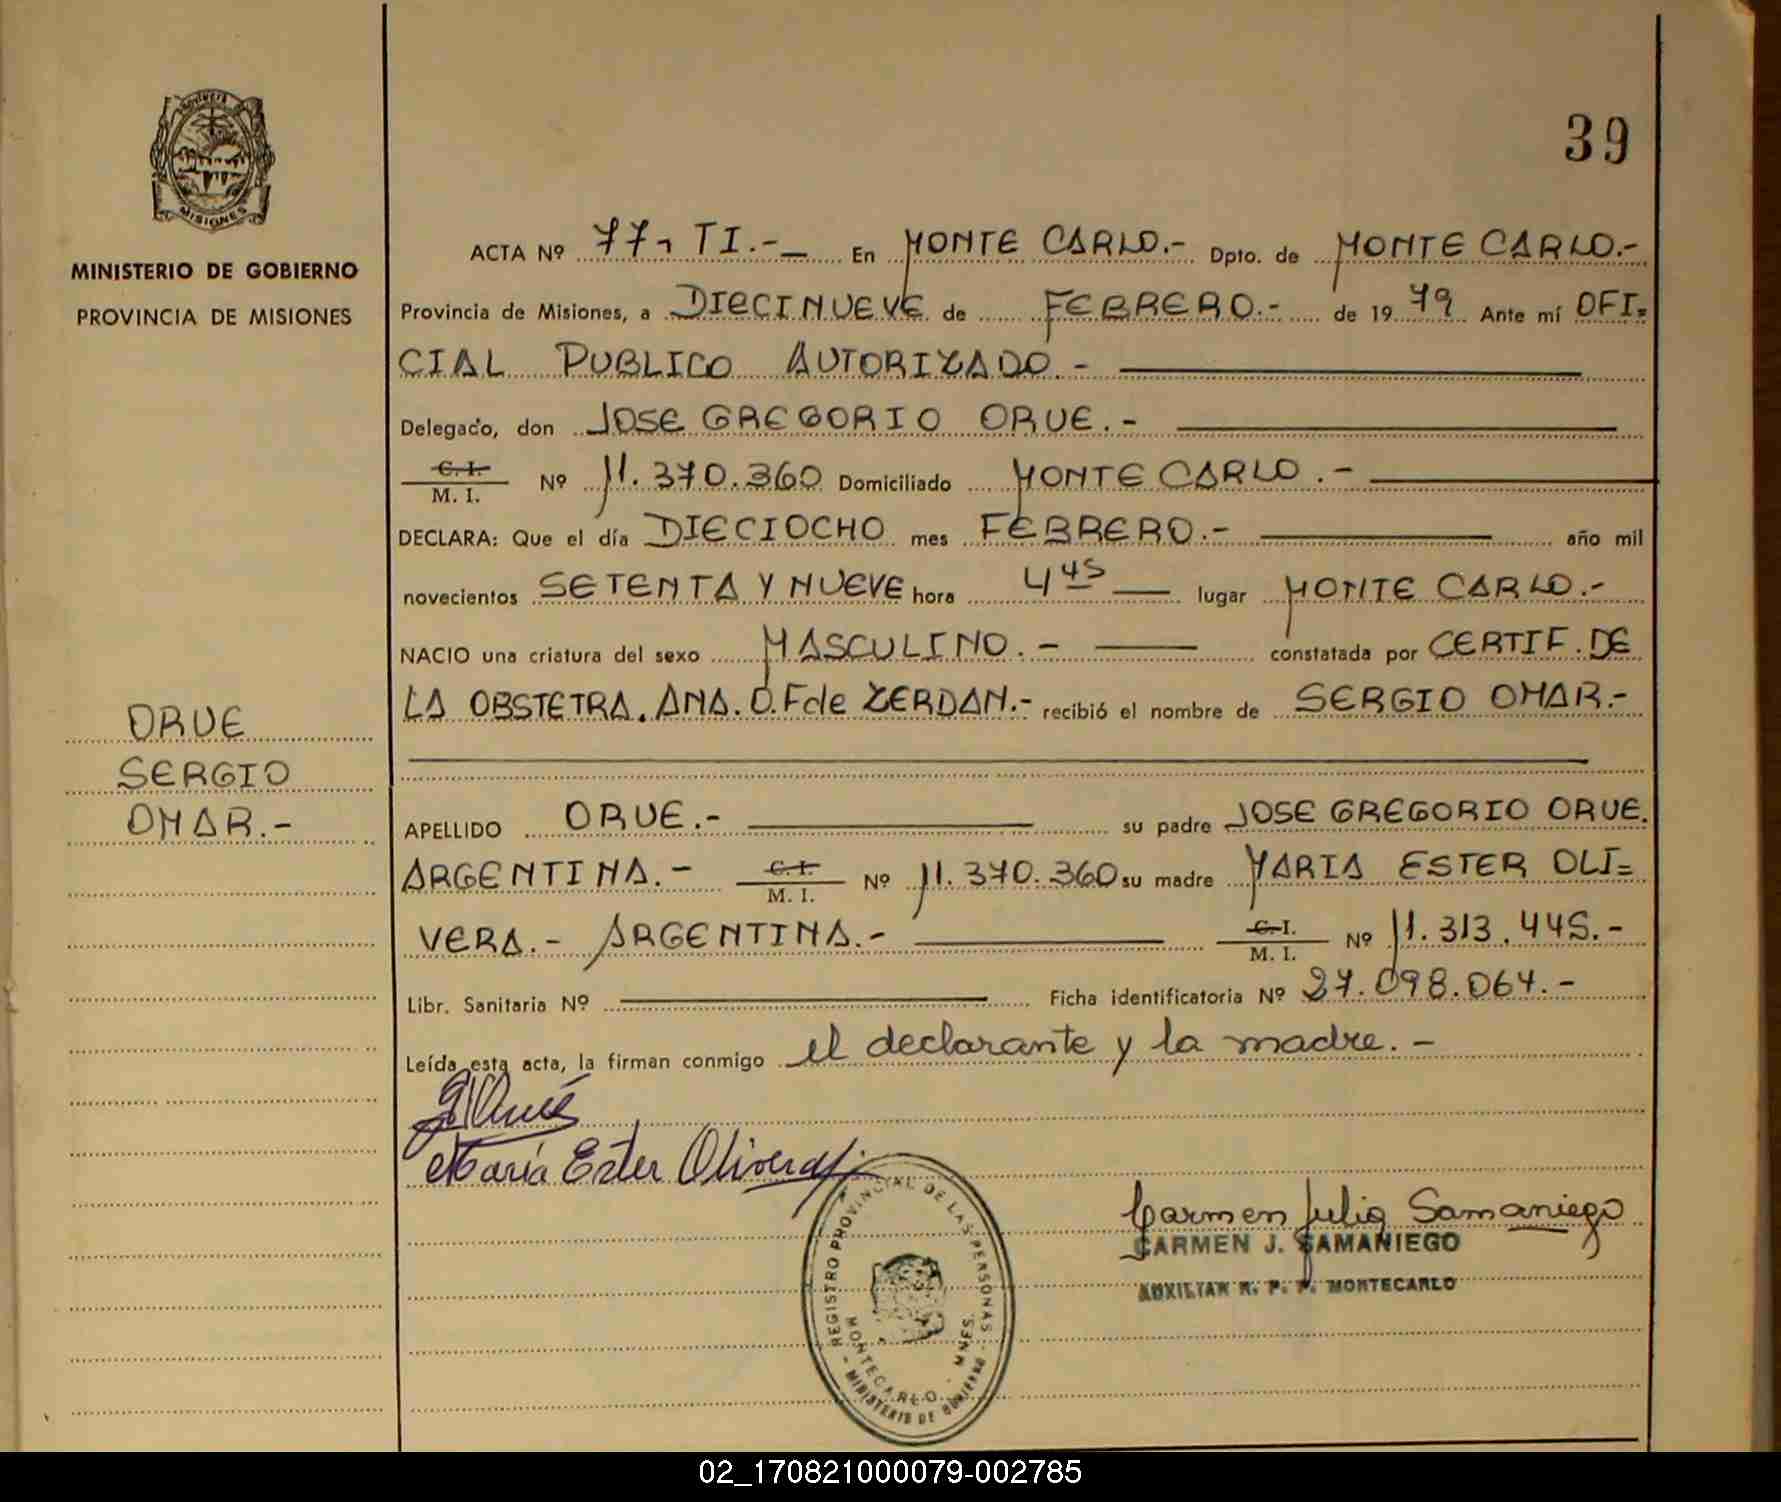 39
MISIONES
MINISTERIO DE GOBIERNO
PROVINCIA DE MISIONES
ACTA Nº 77, TI.-_ En MONTE CARLO.- Dpto. de MONTE CARLO.-
Provincia de Misiones, a DIECINUEVE de FEBRERO.- de 1979 Ante mí OFI=
CIAL PUBLICO AUTORIZADO.-
Delegado, don JOSE GREGORIO ORUE.-
C. I.
M. I. Nº 11.370.360 Domiciliado MONTE CARLO.-
DECLARA: Que el día DIECIOCHO mes FEBRERO.- año mil
novecientos SETENTA Y NUEVE hora 4 45 lugar MONTE CARLO.-
NACIO una criatura del sexo MASCULINO.- constatada por CERTIF. DE
LA OBSTETRA. ANA. O. F de ZERDAN.- recibió el nombre de SERGIO OMAR.-
ORUE
SERGIO
OMAR.-
APELLIDO ORUE.- su padre JOSE GREGORIO ORUE.
ARGENTINA.- C. I. M. I. Nº 11.370.360 su madre MARIA ESTER OLI=
VERA.- ARGENTINA.- C. I. M. I. Nº 11.313.445.-
Libr. Sanitaria Nº Ficha identificatoria Nº 27.098.064.-
Leída esta acta, la firman conmigo el declarante y la madre.-
María Ester Olivera
Carmen Julia Samaniego
CARMEN J. SAMANIEGO
AUXILIAR R. P. P. MONTECARLO
REGISTRO PROVINCIAL DE LAS PERSONAS
MONTECARLO - MNES.
- MINISTERIO DE GOBIERNO -
02_170821000079-002785